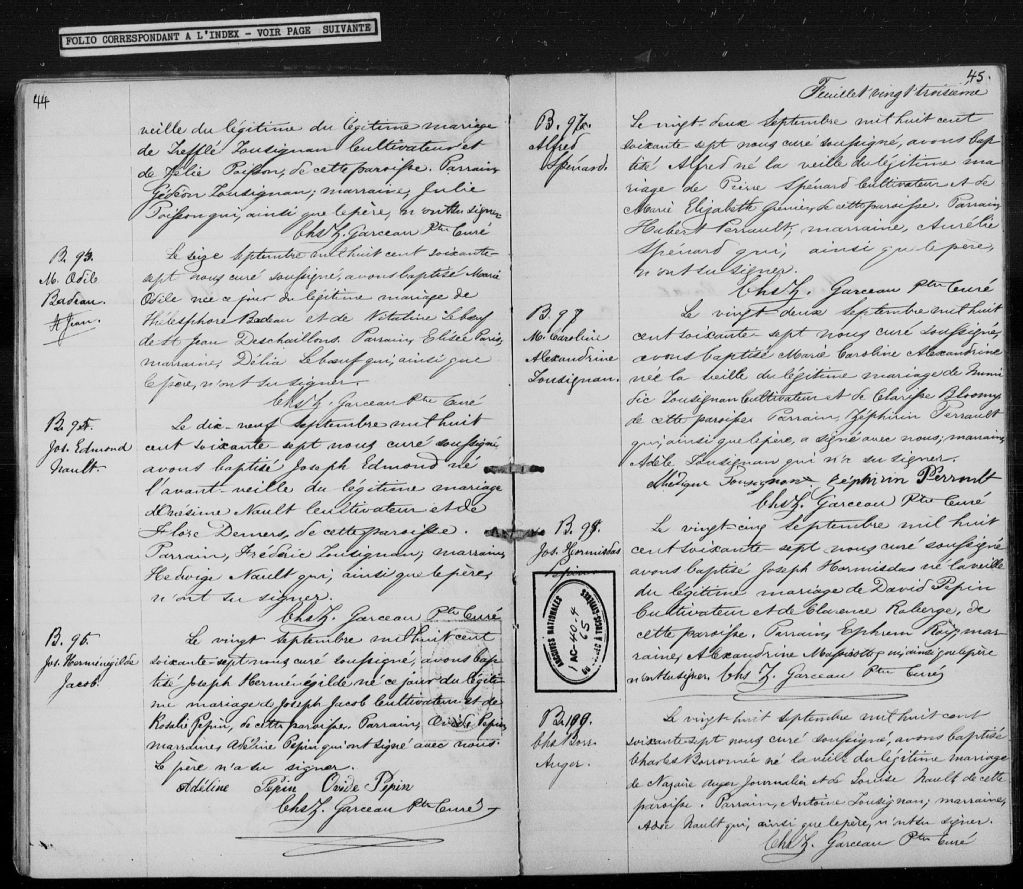 FOLIO CORRESPONDANT A L'INDEX - VOIR PAGE SUIVANTE
44
veille du légitime du légitime mariage
de Trefflé Lousignan Cultivateur et
de Zélie Poisson, de cette paroisse. Parrain,
Gédéon Lousignan; marraine, Julie
Poisson qui, ainsi que le père, n'ont su signer.
Chs Z. Garceau Ptre Curé
B. 93.
M. Odile
Badeau.
St Jean
Le seize Septembre mil huit cent soixante-
sept nous curé soussigné, avons baptisé Marie
Odile née ce jour du légitime mariage de
Thélesphore Badeau et de Vitaline Lebœuf
de St Jean Deschaillons. Parrain, Elisée Paris,
marraine, Délia Lebœuf qui, ainsi que
le père, n'ont su signer.
Chs Z. Garceau Ptre Curé
Jos. Edmond
Nault.
Le dix-neuf Septembre mil huit
cent soixante-sept nous curé soussigné
avons baptisé Joseph Edmond né
l'avant-veille du légitime mariage
d'Onésime Nault Cultivateur et de
Flore Demers, de cette paroisse.
Parrain, Frédéric Lousignan; marraine,
Hedwige Nault qui, ainsi que le père,
n'ont su signer.
Chs Z. Garceau Ptre Curé
Jos. Herménégilde
Jacob.
Le vingt Septembre mil huit cent
soixante-sept nous curé soussigné, avons bap-
tisé Joseph Herménégilde né ce jour du légiti-
me mariage de Joseph Jacob Cultivateur et de
Rosalie Pepin, de cette paroisse. Parrain, Ovide Pepin,
marraine, Adeline Pepin qui ont signé avec nous.
Le père n'a su signer.
Adéline Pépin Ovide Pepin
Chs Z. Garceau Ptre Curé
45.
Feuillet vingt troisième
Alfred
Spénard.
Le vingt-deux Septembre mil huit cent
soixante sept nous curé soussigné, avons bap-
tisé Alfred né la veille du légitime ma-
riage de Pierre Spénard Cultivateur et de
Marie Elizabeth Grenier, de cette paroisse. Parrain,
Hubert Perrault, marraine, Aurélie
Spénard qui, ainsi que le père,
n'ont su signer.
Chs Z. Garceau Ptre Curé
M. Caroline
Alexandrine
Lousignan.
Le vingt deux Septembre mil huit
cent soixante sept nous curé soussigné,
avons baptisé Marie Caroline Alexandrine
née la veille du légitime mariage de
Lousignan Cultivateur et de Clarisse
de cette paroisse. Parrain, Zéphirin Perrault
qui, ainsi que le père, a signé avec nous; marraine,
Adèle Lousignan qui n'a su signer.
Lousignan Zéphirin Perrault
Chs Z. Garceau Ptre Curé
B. 98.
Jos. Hormisdas
Pepin
Le vingt cinq Septembre mil huit
cent soixante-sept nous curé soussigné
avons baptisé Joseph Hormisdas né la veille
du légitime mariage de David Pepin
Cultivateur et de Clarence Roberge, de
cette paroisse. Parrain, Ephrem mar-
raine, Alexandrine qui, ainsi que le père
n'ont su signer. Chs Z. Garceau Ptre Curé
ARCHIVES NATIONALES
AC-40-4
65
Chs Borr.
Auger.
Le vingt-huit Septembre mil huit cent
soixante-sept nous curé soussigné, avons baptisé
Charles Borromée né la veille du légitime mariage
de Nazaire Auger Journalier et de Louise Nault de cette
paroisse. Parrain, Antoine Lousignan; marraine,
Nault qui, ainsi que le père, n'ont su signer.
Chs Z. Garceau Ptre Curé